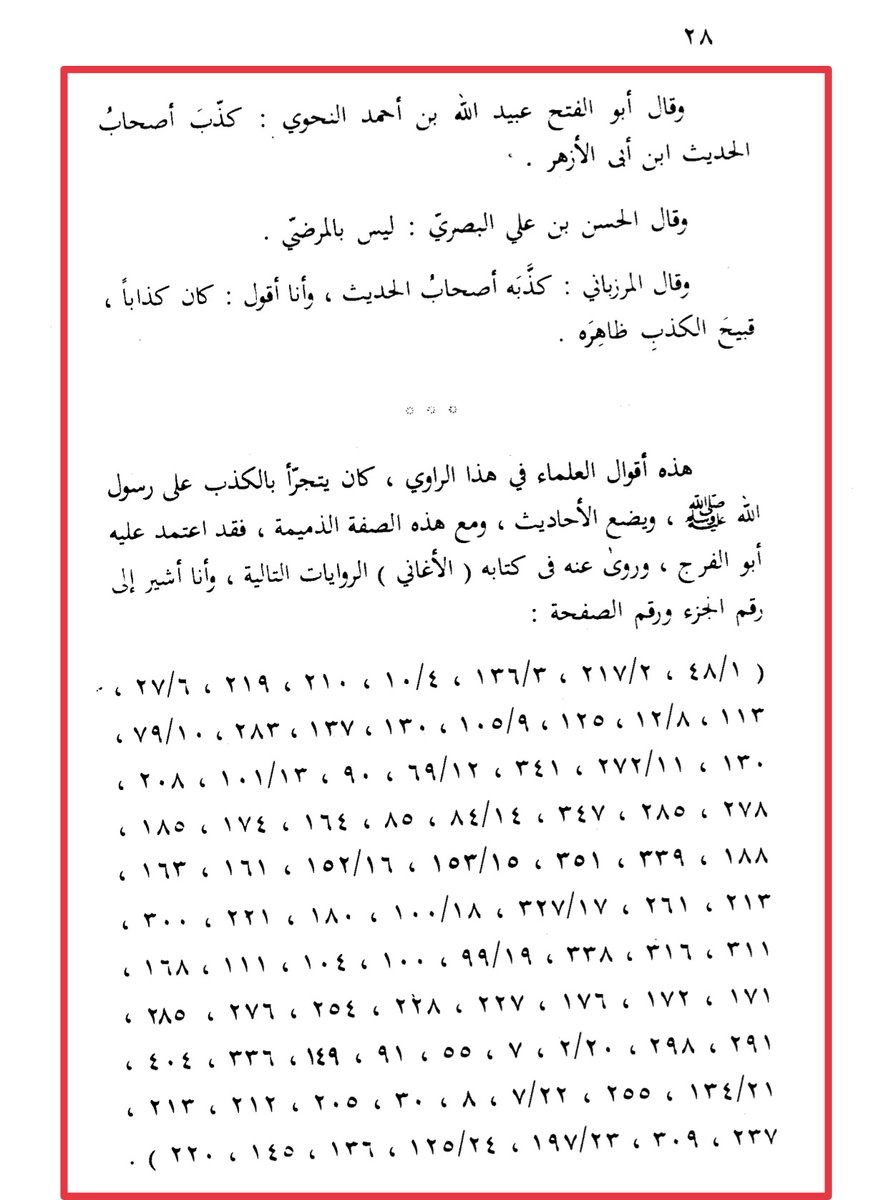 ٢٨
وقال أبو الفتح عبيد الله بن أحمد النحوي : كذّبَ أصحابُ
الحديث ابن أبى الأزهر .
وقال الحسن بن علي البصريّ : ليس بالمرضيّ .
وقال المرزباني : كذَّبَه أصحابُ الحديث ، وأنا أقول : كان كذاباً ،
قبيحَ الكذبِ ظاهِرَه .
هذه أقوال العلماء في هذا الراوي ، كان يتجرّأ بالكذب على رسول
الله ﷺ ، ويضع الأحاديث ، ومع هذه الصفة الذميمة ، فقد اعتمد عليه
أبو الفرج ، وروىٰ عنه فى كتابه ( الأغاني ) الروايات التالية ، وأنا أشير إلى
رقم الجزء ورقم الصفحة :
( ٤٨/١ ، ٢١٧/٢ ، ١٣٦/٣ ، ١٠/٤ ، ٢١٠ ، ٢١٩ ، ٢٧/٦ ،
١١٣ ، ١٢/٨ ، ١٢٥ ، ١٠٥/٩ ، ١٣٠ ، ١٣٧ ، ٢٨٣ ، ٧٩/١٠ ،
١٣٠ ، ٢٧٢/١١ ، ٣٤١ ، ٦٩/١٢ ، ٩٠ ، ١٠١/١٣ ، ٢٠٨ ،
٢٧٨ ، ٢٨٥ ، ٣٤٧ ، ٨٤/١٤ ، ٨٥ ، ١٦٤ ، ١٧٤ ، ١٨٥ ،
١٨٨ ، ٣٣٩ ، ٣٥١ ، ١٥٣/١٥ ، ١٥٢/١٦ ، ١٦١ ، ١٦٣ ،
٢١٣ ، ٢٦١ ، ٣٢٧/١٧ ، ١٠٠/١٨ ، ١٨٠ ، ٢٢١ ، ٣٠٠ ،
٣١١ ، ٣١٦ ، ٣٣٨ ، ٩٩/١٩ ، ١٠٠ ، ١٠٤ ، ١١١ ، ١٦٨ ،
١٧١ ، ١٧٢ ، ١٧٦ ، ٢٢٧ ، ٢٢٨ ، ٢٥٤ ، ٢٧٦ ، ٢٨٥ ،
٢٩١ ، ٢٩٨ ، ٢/٢٠ ، ٧ ، ٥٥ ، ٩١ ، ١٤٩ ، ٣٣٦ ، ٤٠٤ ،
١٣٤/٢١ ، ٢٥٥ ، ٧/٢٢ ، ٨ ، ٣٠ ، ٢٠٥ ، ٢١٢ ، ٢١٣ ،
٢٣٧ ، ٣٠٩ ، ١٩٧/٢٣ ، ١٢٥/٢٤ ، ١٣٦ ، ١٤٥ ، ٢٢٠ ) .